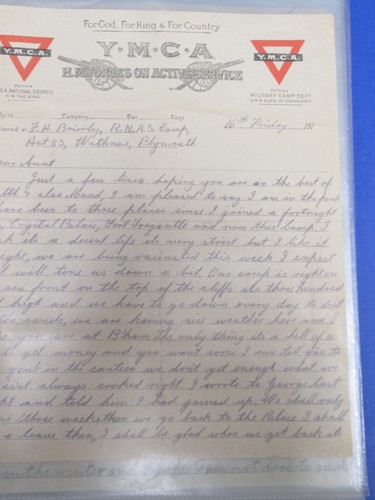 For God, For King & For Country
Y.M.C.A
Y.M.C.A.
Y.M.C.A.
H.M. FORCES ON ACTIVE SERVICE
PATRON
NATIONAL COUNCIL
H.M. THE KING
PATRON
MILITARY CAMP DEPT.
H.R.H. DUKE OF CONNAUGHT
Company Bat. Regt.
F.H. R.N.A.S. Camp, 16th Friday 191
Hut 53, Plymouth
Aunt
Just a few lines hoping you are in the best of
& also Maud, I am pleased to say I am in the pink
have been to three places since I joined a fortnight
Crystal Palace, Fort and now this Camp, I
its a decent life its very strict but I like it
right, we are being vaccinated this week I expect
will tone us down a bit. Our camp is right on
sea front on the top of the cliffs its two hundred
high and we have to go down every day to drill
the sands, we are having nice weather here and I
you are at B'ham the only thing its a hell of a
to get money and you want some I can tell you to
out in the canteen we don't get enough what we
isn't always cooked right. I wrote to George last
and told him I had joined up. We shall only
three weeks then we go back to the Palace I shall
a leave then, I shall be glad when we get back its
in the winter and I am not here to